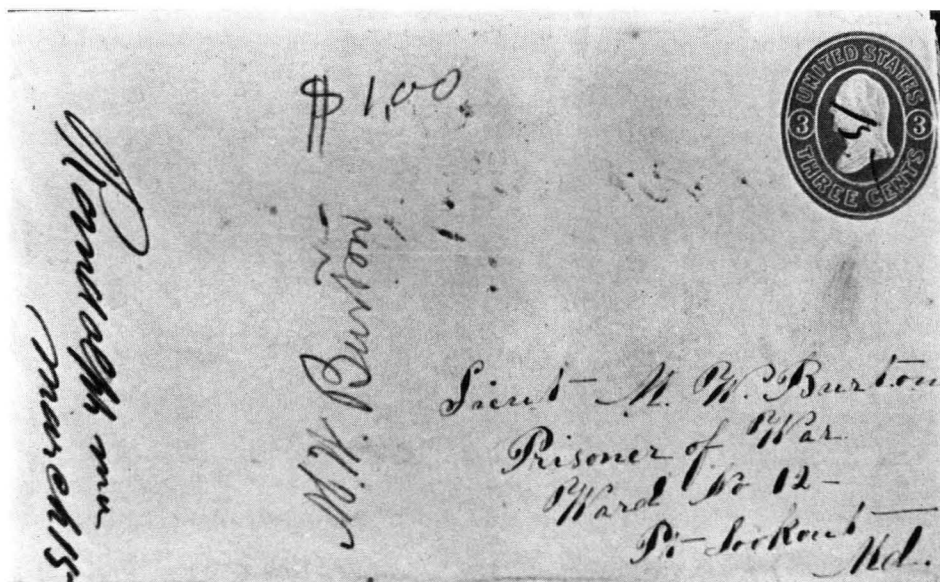 Randolph Mon
March 15
$1,00
M. W. Burton
UNITED STATES
3 3
THREE CENTS
Lieut M. W. Burton
Prisoner of War
Ward No 12 -
Pt Lookout
Md.